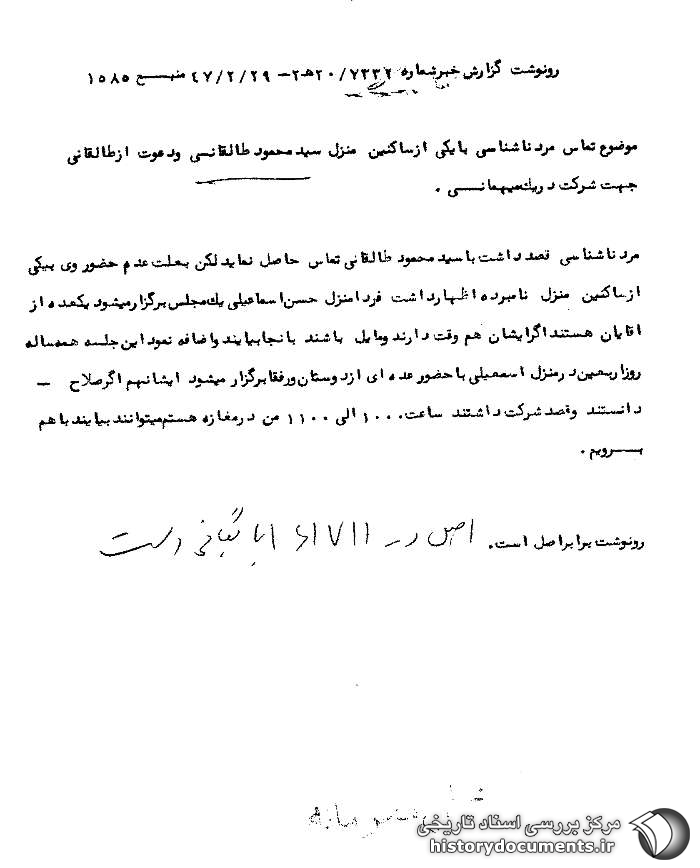 رونوشت گزارش خبر شماره ۷۳۳۲/۲۰ هـ ۲ - ۴۷/۲/۲۹ منبـــع ۱۵۸۵
موضوع تماس مرد ناشناسی با یکی از ساکنین منزل سید محمود طالقانسی و دعوت از طالقانی
جهت شرکت در یك میهمانــی .
مرد ناشناسی قصد داشت با سید محمود طالقانی تماس حاصل نماید لکن بعلت عدم حضور وی بیکی
از ساکنین منزل نامبرده اظهار داشت فردا منزل حسن اسماعیلی یك مجلس برگزار میشود یکعده از
اقایان هستند اگر ایشان هم وقت دارند و مایل باشند بانجا بیایند و اضافه نمود این جلسه همه ساله
روز اربعین در منزل اسمعیلی با حضور عده ای از دوستان و رفقا برگزار میشود ایشانهم اگر صلاح –
دانستند و قصد شرکت داشتند ساعت ۱۰۰۰ الی ۱۱۰۰ من در مغازه هستم میتوانند بیایند با هم
بـــرویم .
رونوشت برابر اصل است . اصل در
است
مرکز بررسی اسناد تاریخی
historydocuments.ir